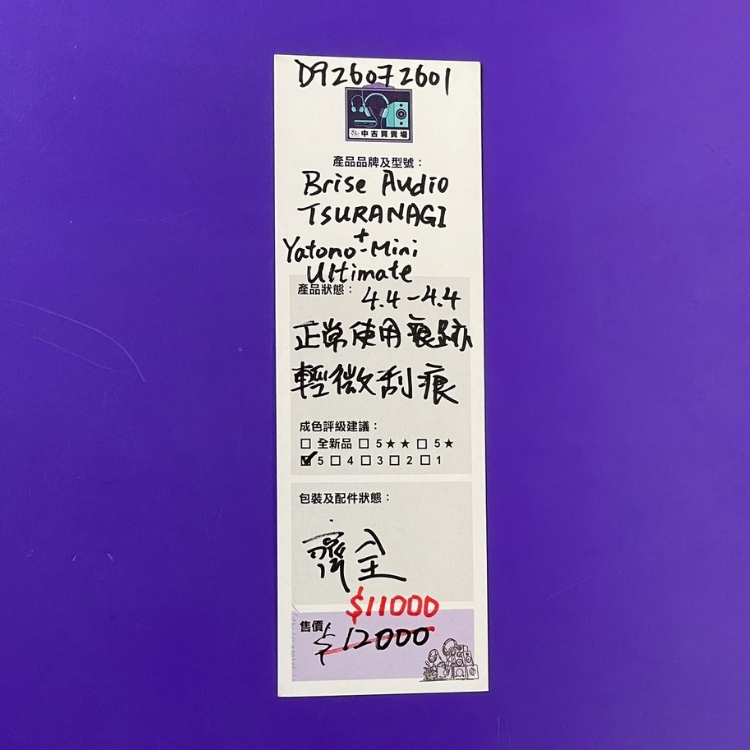 D926072601
中古買賣場
產品品牌及型號：
Brise Audio
TSURANAGI
+
Yatono-Mini
Ultimate
產品狀態： 4.4-4.4
正常使用痕跡
輕微刮痕
成色評級建議：
□ 全新品 □ 5★★ □ 5★
☑ 5 □ 4 □ 3 □ 2 □ 1
包裝及配件狀態：
齊全
$11000
售價 $12000